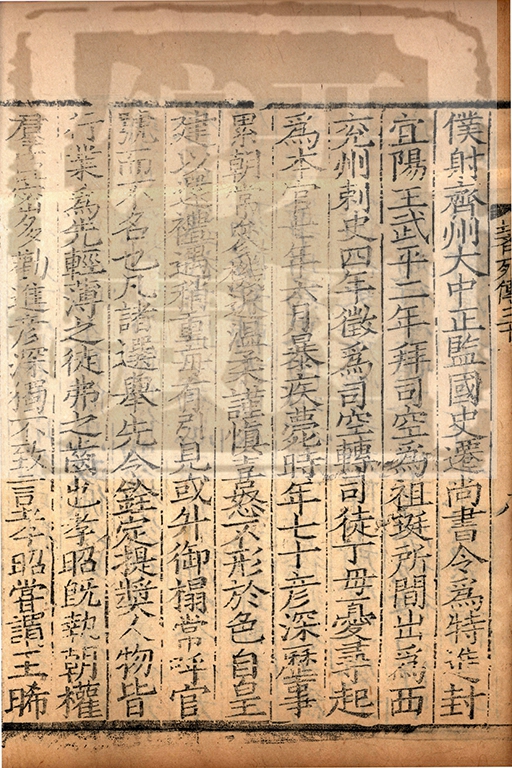 列傳三十
八
僕射齊州大中正監國史遷尚書令爲特進封
宜陽王武平二年拜司空爲祖珽所間出爲西
兗州刺史四年徵爲司空轉司徒丁母憂尋起
爲本官七年六月暴疾薨時年七十彦深歷事
累朝常參機近溫柔謹慎喜怒不形於色自皇
建以還禮遇稍重每有引見或升御榻常呼官
號而不名也凡諸選舉先令銓定提奬人物皆
行業爲先輕薄之徒弗之齒也孝昭既執朝權
羣臣密多勸進彦深獨不致言孝昭嘗謂王晞